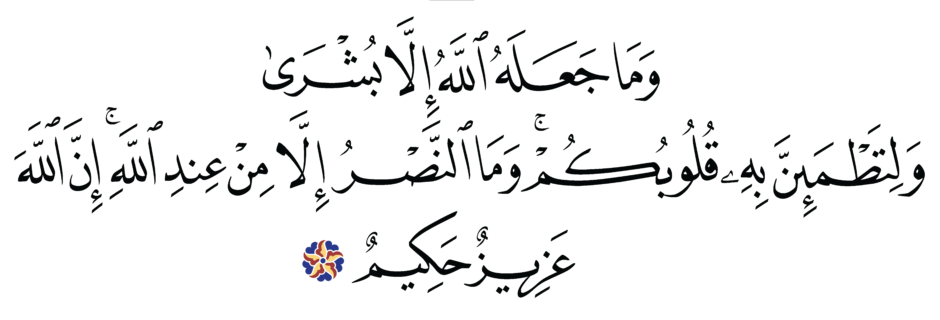 وَمَا جَعَلَهُ ٱللَّهُ إِلَّا بُشْرَىٰ
وَلِتَطْمَئِنَّ بِهِۦ قُلُوبُكُمْ ۚ وَمَا ٱلنَّصْرُ إِلَّا مِنْ عِندِ ٱللَّهِ ۚ إِنَّ ٱللَّهَ
عَزِيزٌ حَكِيمٌ